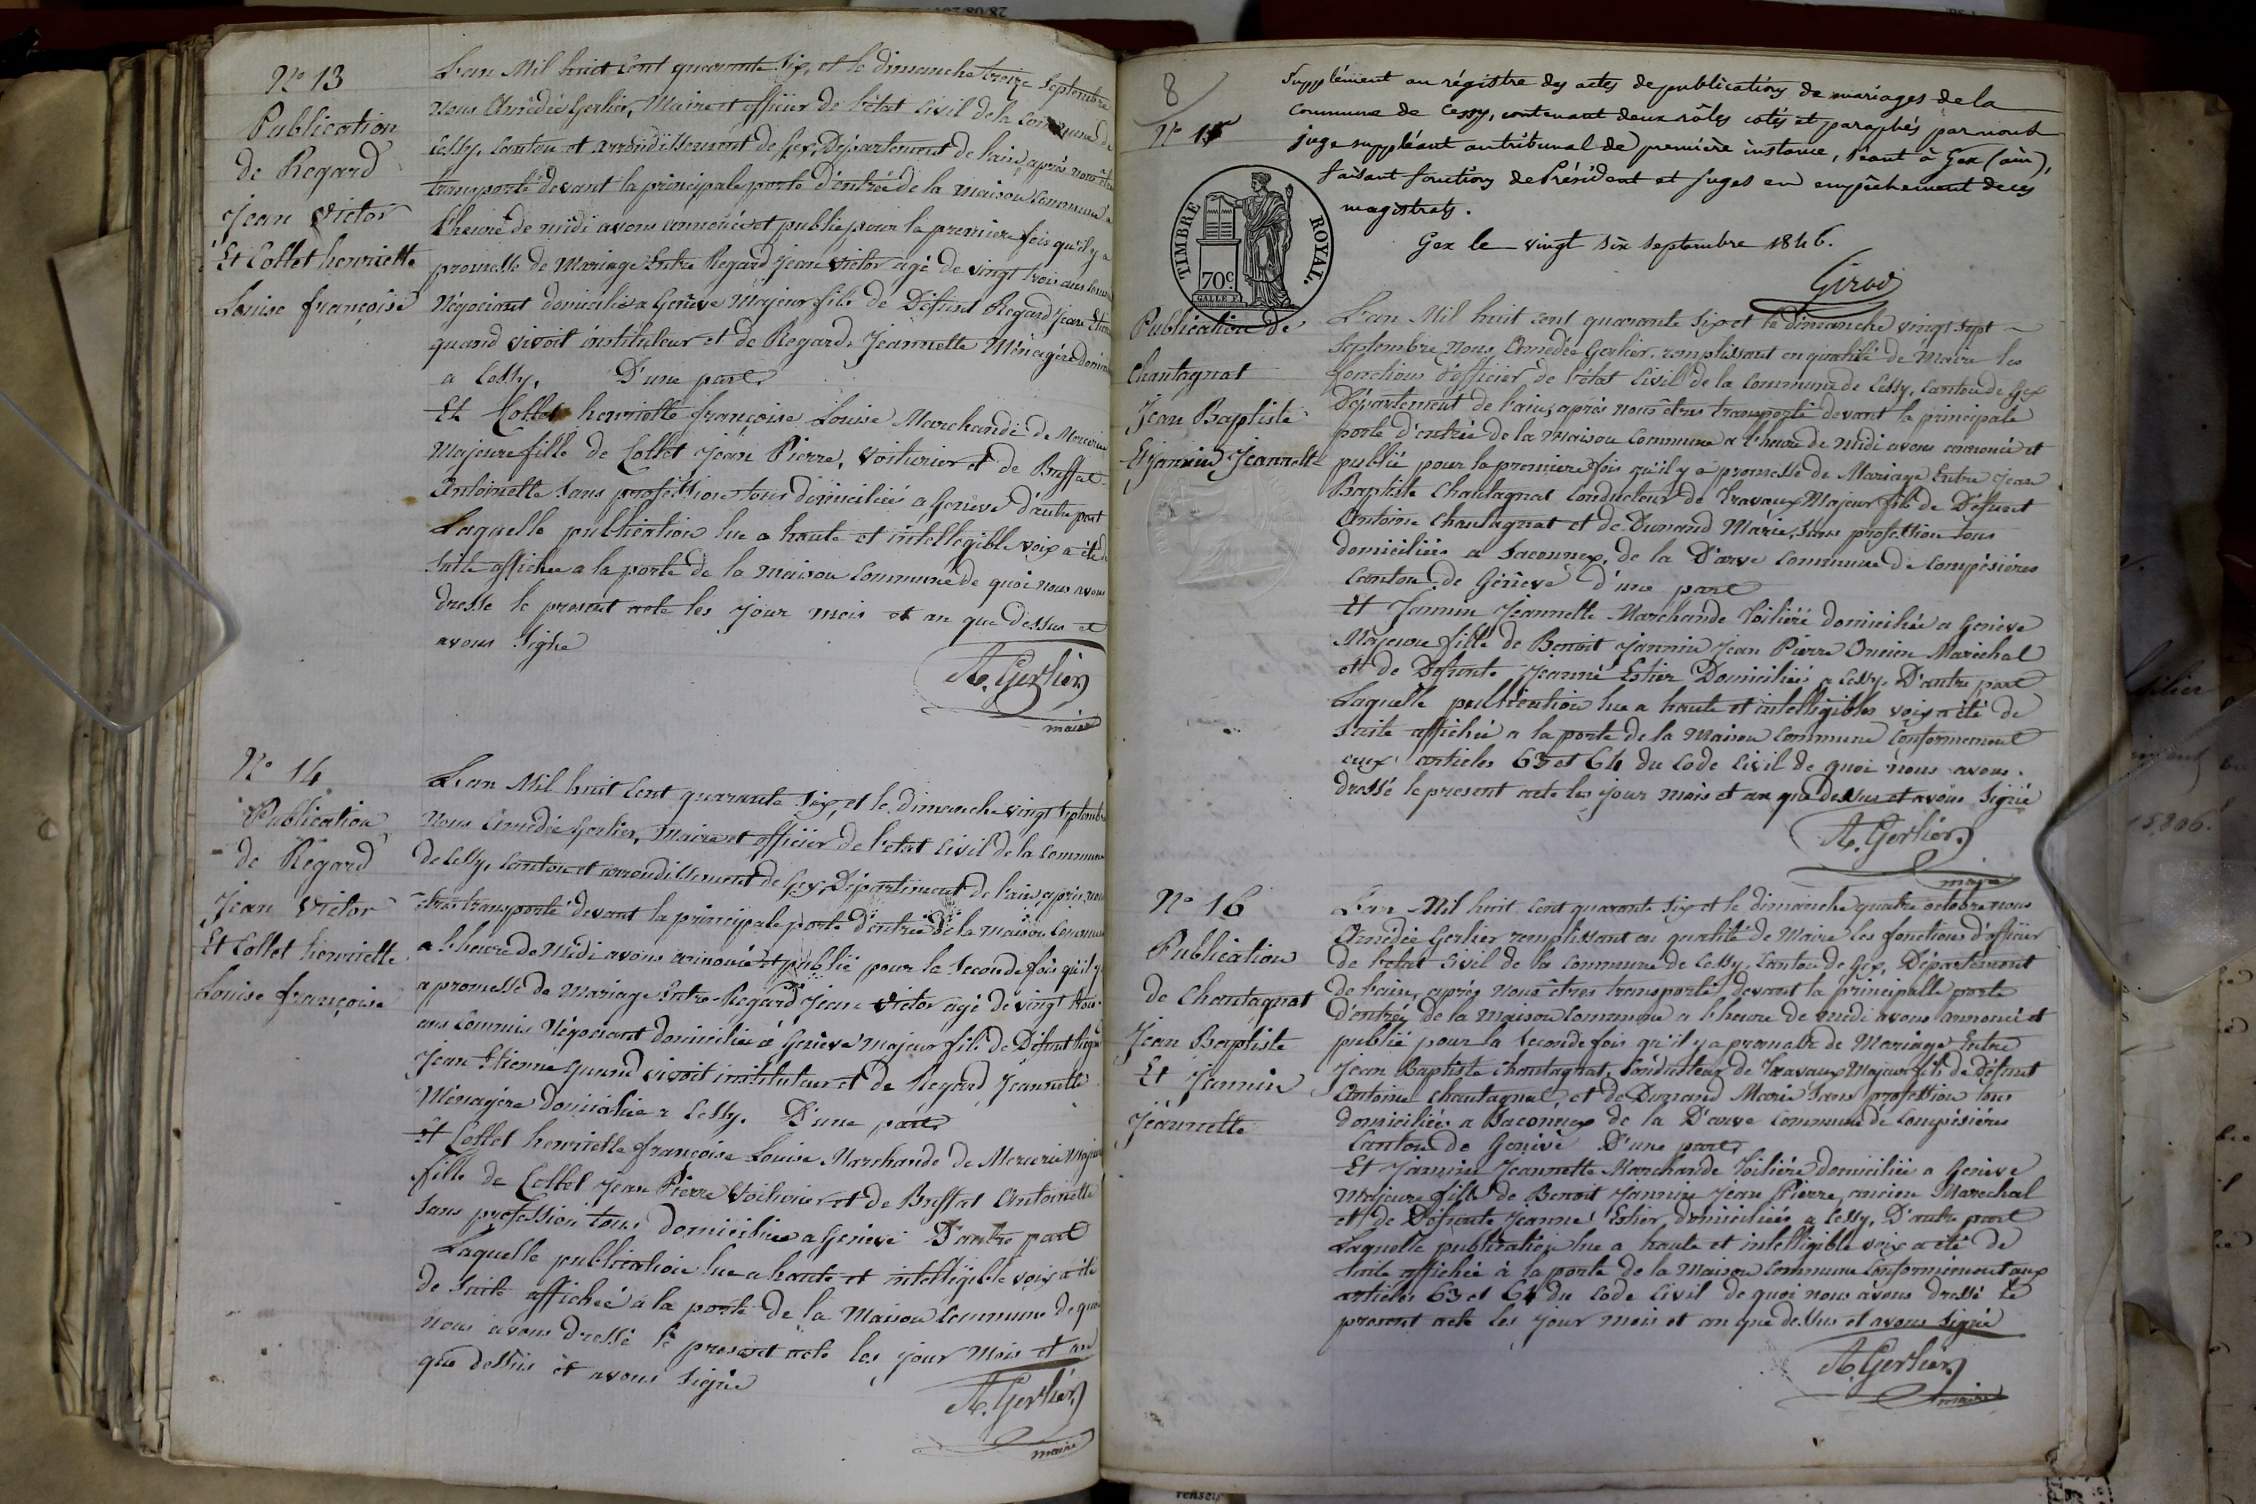 N° 13
Publication
de Regard
Jean Victor
Et Collet henriette
Louise françoise
L'an Mil huit Cent quarante Six, et le dimanche treize Septembre
nous Amédée Gerlier, Maire et officier de l'état Civil de la Commune de
Cessy, Canton et arrondissement de Gex, Département de l'ain, après nous être
transporté devant la principale porte d'entrée de la maison Commune a
l'heure de midi avons annoncé et publié pour la premiere fois qu'il y a
promesse de Mariage Entre Regard Jean Victor agé de vingt trois ans Commis
Négociant domicilié a Genève Majeur fils de Défunt Regard Jean Etienne
quand vivoit instituteur et de Regard Jeannette Ménagère domiciliée
a Cessy, D'une part
Et Collet henriette françoise Louise Marchande de Mercerie
Majeure fille de Collet Jean Pierre, Voiturier et de Buffat
Antoinette Sans profession tous domiciliés a Genève d'autre part
Laquelle publication lue a haute et intellegible voix a été de
Suite affichée a la porte de la maison Commune de quoi nous avons
dressé le present acte les jour mois et an que dessus et
avons Signé
A. Gerlier
maire
N° 14
Publication
de Regard
Jean Victor
Et Collet henriette
Louise françoise
L'an Mil huit Cent quarante Six, et le dimanche vingt Septembre
Nous Amédée Gerlier, Maire et officier de l'etat Civil de la Commune
de Cessy, Canton et arrondissement de Gex, Département de l'ain, après nous
être transporté devant la principale porte d'entrée de la maison Commune
a l'heure de Midi avons annoncé et publié pour la Seconde fois qu'il y
a promesse de Mariage Entre Regard Jean Victor agé de vingt trois
ans Commis Négociant domicilié à Genève majeur fils de Défunt Regard
Jean Etienne quand vivoit instituteur et de Regard Jeannette
Ménagère domiciliée a Cessy. D'une part
Et Collet henriette françoise Louise Marchande de Mercerie Majeure
fille de Collet Jean Pierre Voiturier et de Buffat Antoinette
Sans profession tous domiciliés a Genève D'autre part
Laquelle publication lue a haute et intelligible voix a été
de Suite affichée a la porte de la Maison Commune de quoi
nous avons dressé le present acte les jour mois et an
que dessus et avons Signé
A. Gerlier
maire
8
N° 15
Supplément au régistre des actes de publications de mariages de la
commune de Cessy, contenant deux rôles cotés et paraphés par nous
juge suppléant au tribunal de première instance, séant à Gex (ain),
faisant fonctions de Président et juges en empêchement de ces
magistrats.
Gex le vingt six septembre 1846.
Girod
TIMBRE ROYAL.
70c.
Publication de
Chantagnat
Jean Baptiste
Et Jannin Jeannette
L'an Mil huit Cent quarante Six et le dimanche vingt Sept
Septembre, Nous Amédée Gerlier, remplissant en qualité de Maire les
fonctions d'officier de l'état Civil de la Commune de Cessy, Canton de Gex
Département de l'ain, après nous êtres transporté devant la principale
porte d'entrée de la Maison Commune a l'heure de Midi avons annoncé et
publié pour la premiere fois qu'il y a promesse de Mariage Entre Jean
Baptiste Chantagnat Conducteur de travaux Majeur fils de Défunt
Antoine Chantagnat et de Dunand Marie, Sans profession tous
domiciliés a Saconnex, de la D'arve Commune de Compésières
Canton de Genève d'une part
Et Jannin Jeannette Marchande Toilière domiciliée a Genève
Majeure fille de Benoit Jannin Jean Pierre Ancien Maréchal
et de Defunte Jeanne Estier Domiciliés a Cessy. D'autre part
Laquelle publication lue a haute et intelligibles voix a été de
Suite affichée a la porte de la Maison Commune Conformement
aux articles 63 et 64 du Code Civil de quoi nous avons
dressé le present acte les jour mois et an que dessus et avons Signé
A. Gerlier
maire
N° 16
Publication
de Chantagnat
Jean Baptiste
Et Jannin
Jeannette
L'an Mil huit Cent quarante Six et le dimanche quatre octobre nous
Amédée Gerlier remplissant en qualité de Maire les fonctions d'officier
de l'etat Civil de la Commune de Cessy Canton de Gex, Département
de l'ain, après nous êtres transporté devant la principalle porte
D'entrée de la Maison Commune a l'heure de midi avons annoncé et
publié pour la Seconde fois qu'il y a promesse de Mariage Entre
Jean Baptiste Chantagnat, Conducteur de Travaux Majeur fils de défunt
Antoine Chantagnat, et de Dunand Marie Sans profession tous
domiciliés a Saconnex de la D'arve Commune de Compésières
Canton de Genève D'une part
Et Jannin Jeannette Marchande Toilière domiciliée a Genève
Majeure fille de Benoit Jannin Jean Pierre, ancien Marechal
et de Défunte Jeanne Estier, domiciliés a Cessy, D'autre part
Laquelle publication lue a haute et intelligible voix a été de
Suite affichée à la porte de la Maison Commune Conformément aux
articles 63 et 64 du Code Civil de quoi nous avons dressé le
present acte les jour mois et an que dessus et avons Signé
A. Gerlier
maire